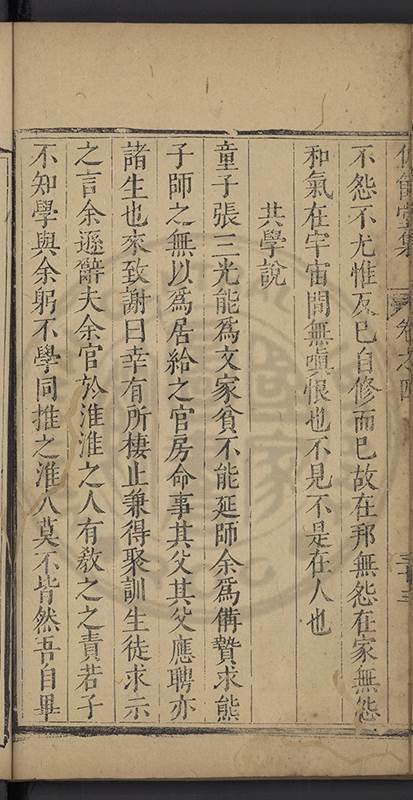 堂集 卷之四
不怨不尤惟反已自修而已故在邦無怨在家無怨
和氣在宇宙間無嗔恨也不見不是在人也
共學說
童子張三光能爲文家貧不能延師余爲備贄求熊
子師之無以爲居給之官房命事其父其父應聘亦
諸生也來致謝曰幸有所棲止兼得聚訓生徒求示
之言余遜辭夫余官於淮淮之人有敎之之責若子
不知學與余躬不學同推之淮人莫不皆然吾自畢